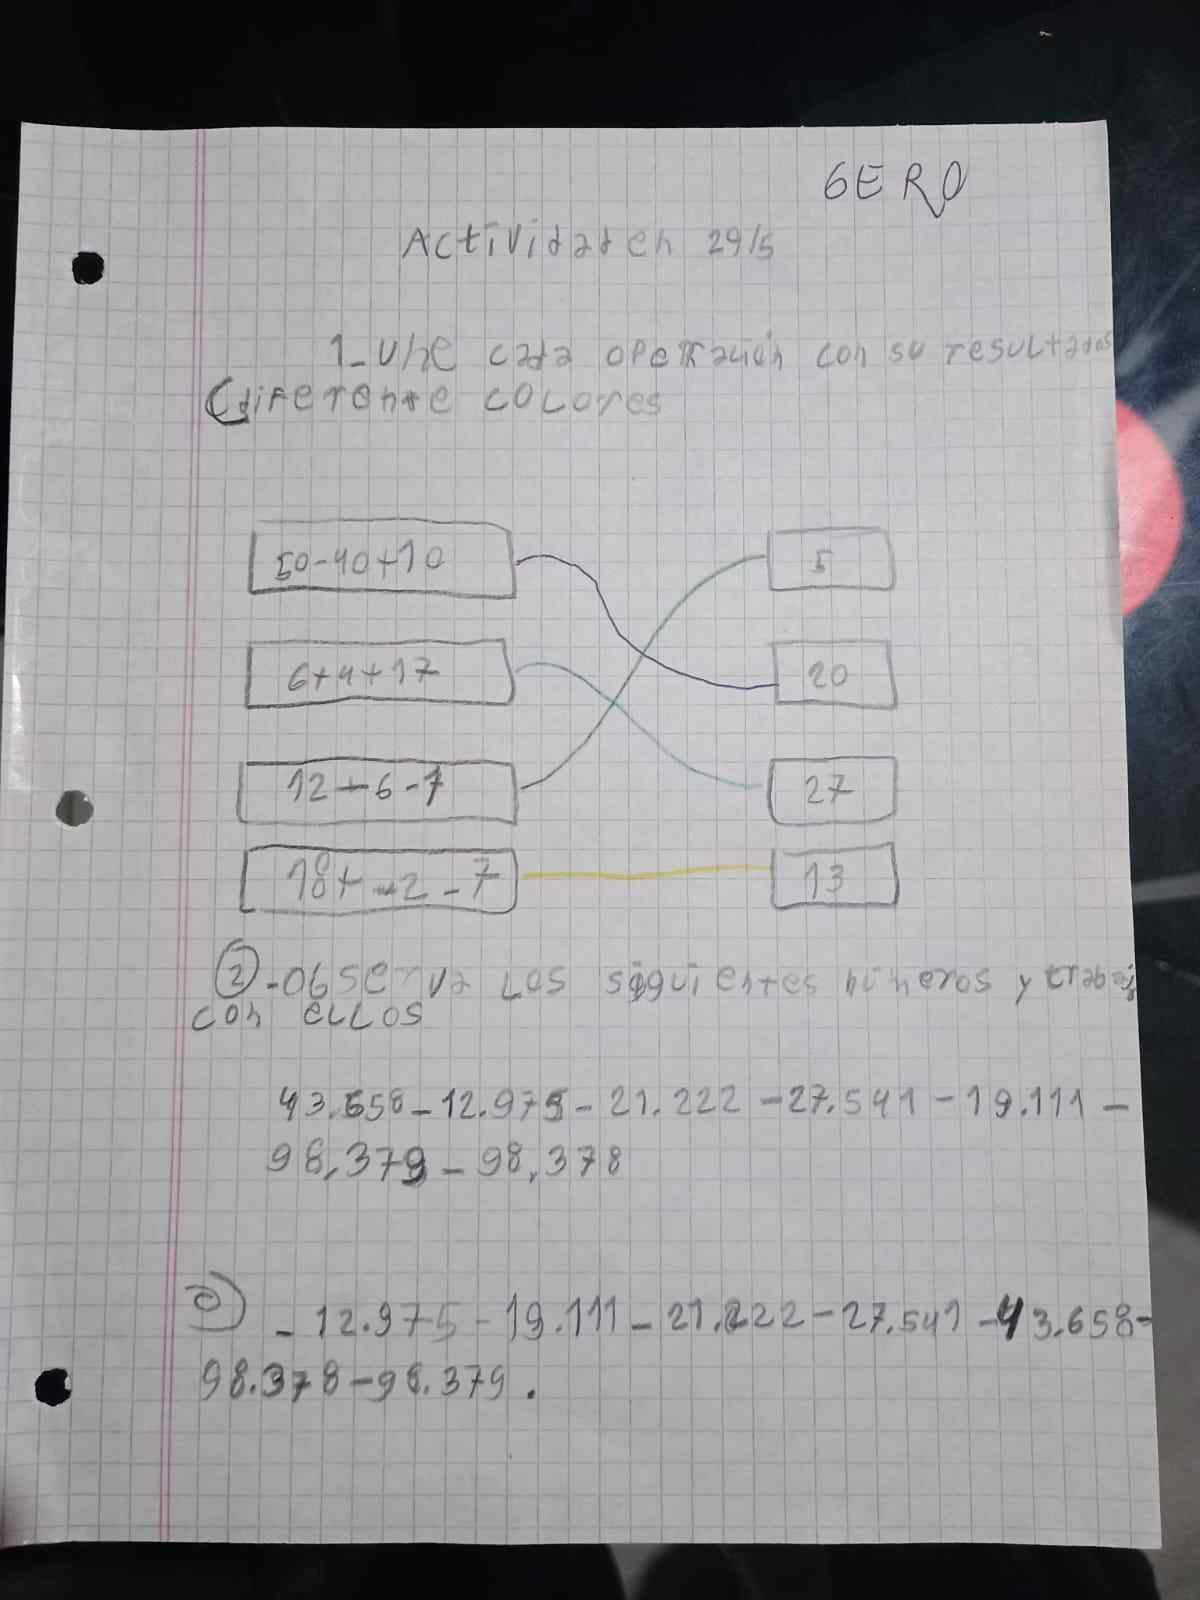 GERO
Actividad en 29/5
1-une cada operación con su resultados
(diferente colores
50-40+10
5
6+4+17
20
12+6-7
27
18+-2-7
13
2-observa los siguientes números y trabaja
con ellos
43.658-12.975-21.222-27.541-19.111-
98,379-98,378
c) -12.975-19.111-21.222-27.541-43.658-
98.378-98.379.